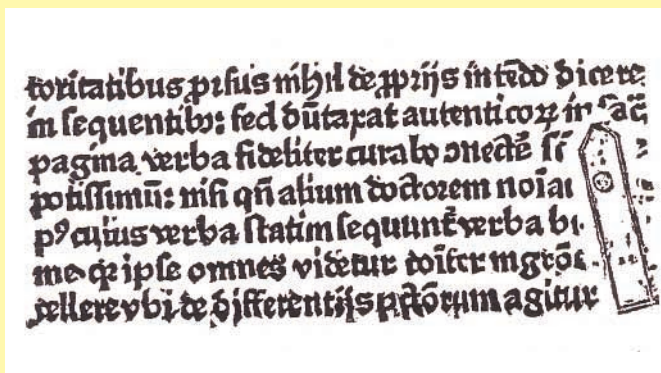 toritatibus prſus nihil de ꝓprijs intēdo dicere
in ſequentibꝫ: ſed dūtaxat autenticoꝝ in ſac̄
pagina verba fideliter curabo ↄnectē ſi
potiſſimū: niſi qn̄ alium doctorem
pꝰ cuius verba ſtatim ſequunt̄ verba bi-
me. qꝛ ipſe omnes videtur cōiter
cellere vbi de differentijs pctōrum agitur